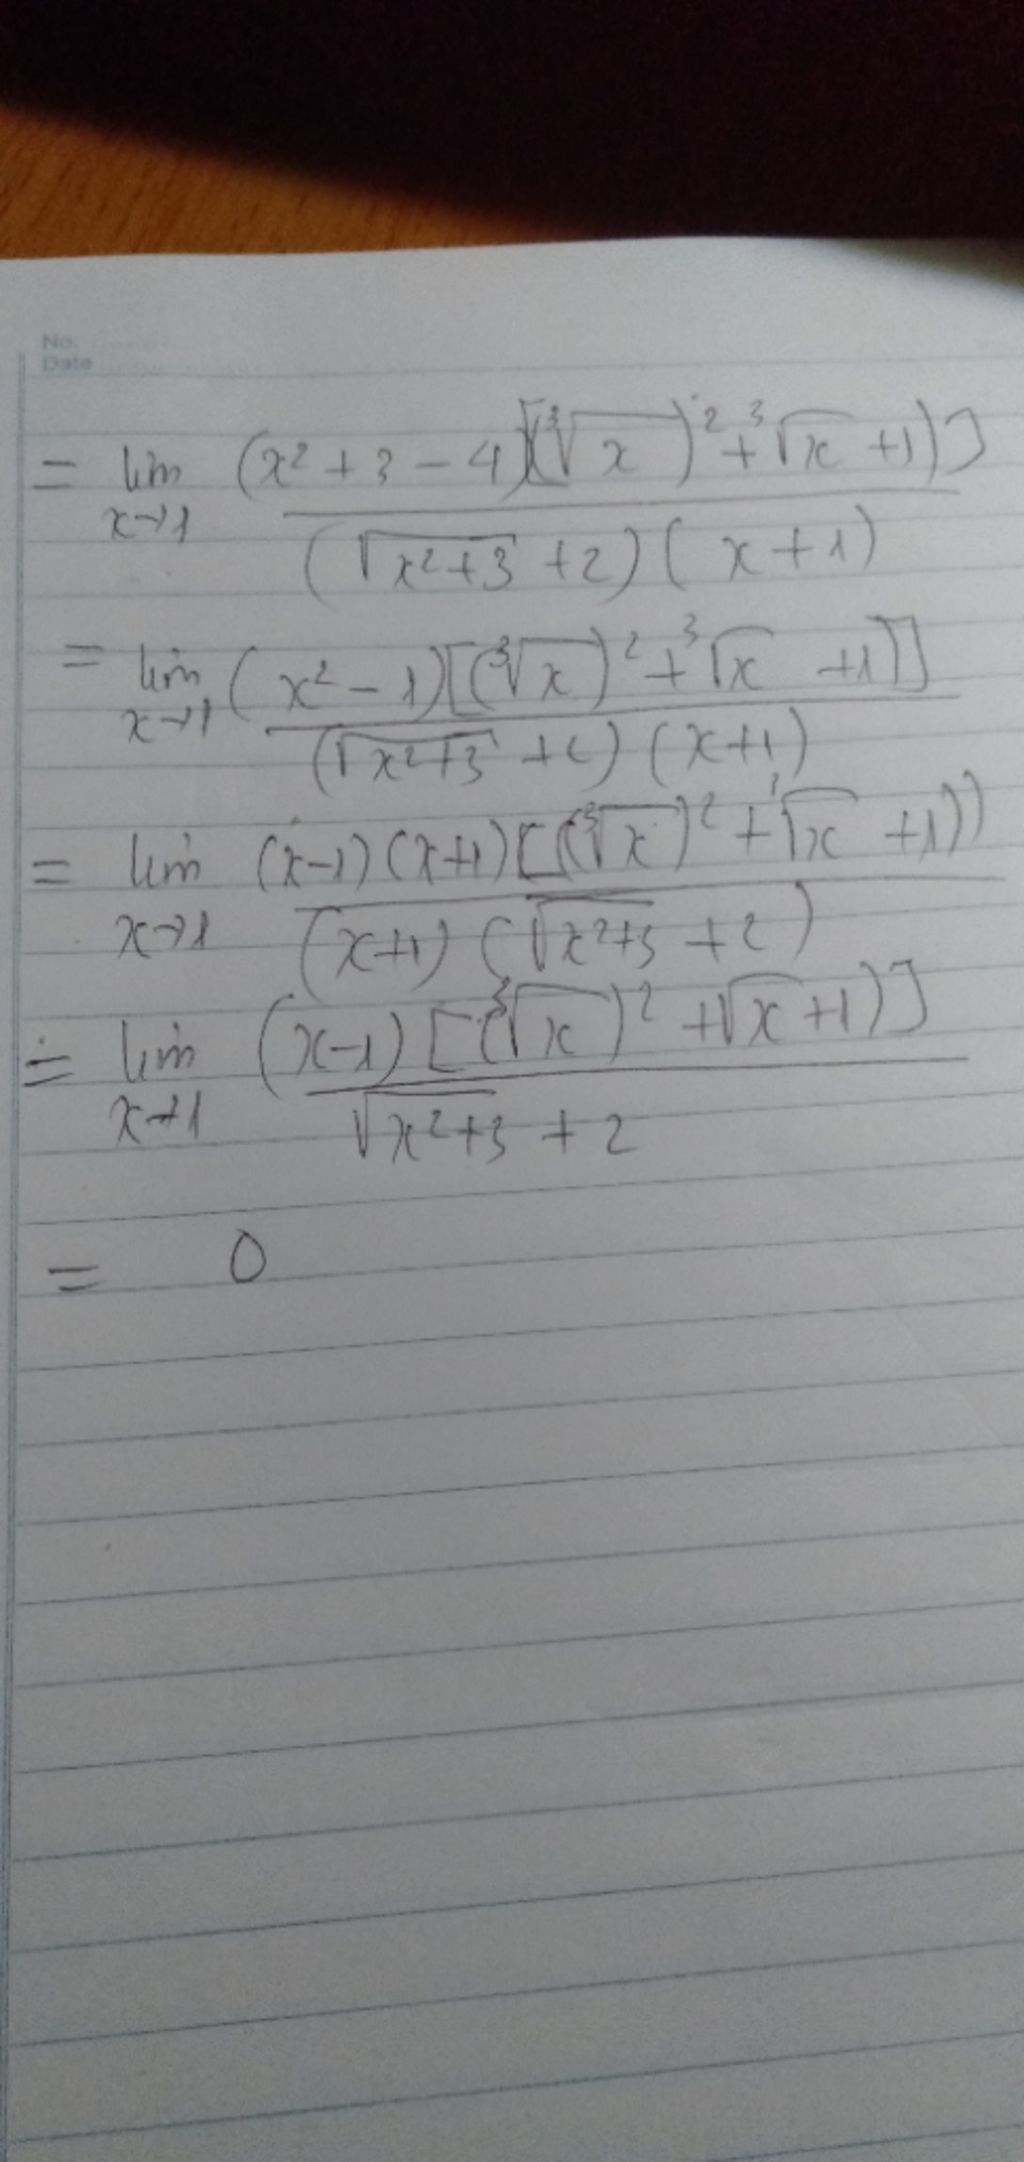 No.
Date
= lim x→1 (x² + 3 - 4)[(∛x)² + ∛x + 1)] / (√(x²+3) + 2)(x + 1)
= lim x→1 (x² - 1)[(∛x)² + ∛x + 1)] / (√(x²+3) + 2)(x+1)
= lim x→1 (x-1)(x+1)[(∛x)² + ∛x + 1)) / (x+1)(√(x²+3) + 2)
= lim x→1 (x-1)[(∛x)² + √x + 1)] / √(x²+3) + 2
= 0